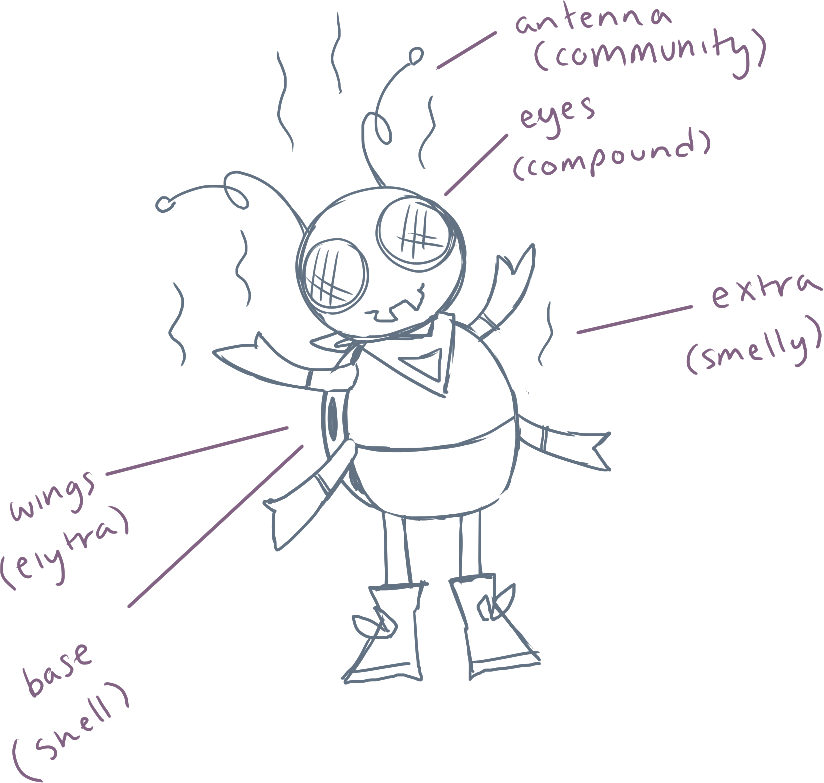 antenna
(community)
eyes
(compound)
extra
(smelly)
wings
(elytra)
base
(shell)